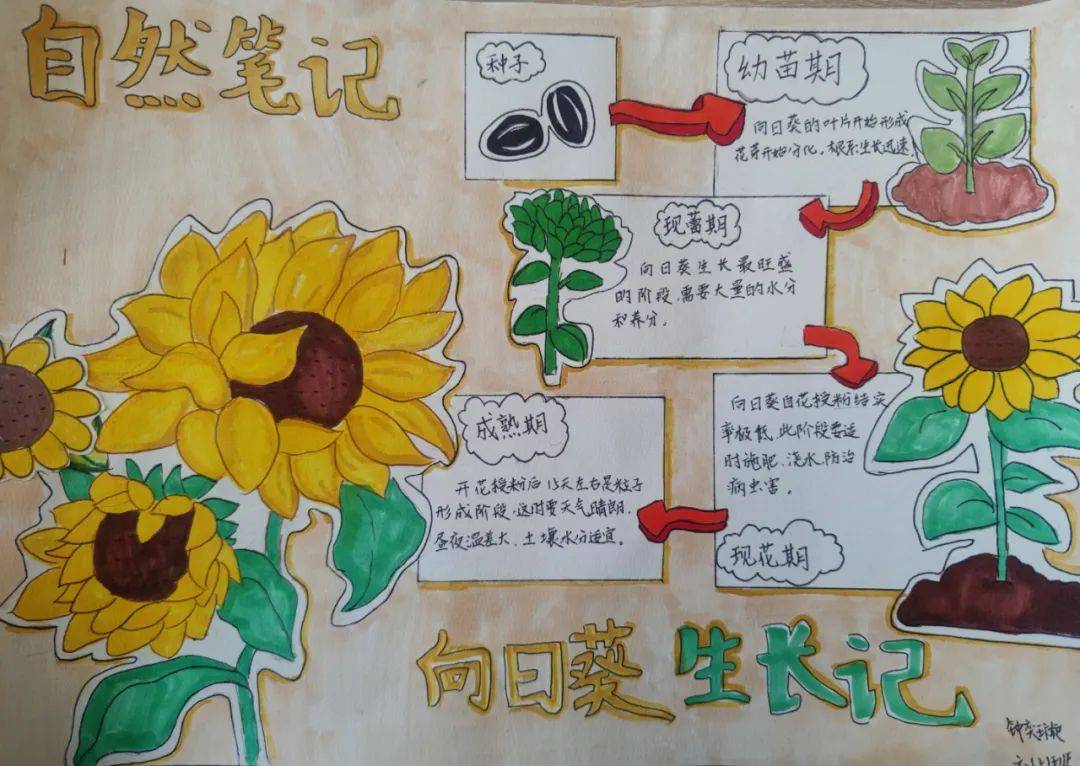 自然笔记
种子
幼苗期
向日葵的叶片开始形成
花芽开始分化。根系生长迅速。
现蕾期
向日葵生长最旺盛
的阶段,需要大量的水分
和养分。
向日葵自花授粉结实
率极低,此阶段要适
时施肥、浇水、防治
病虫害。
现花期
成熟期
开花授粉后15天左右是籽子
形成阶段,这时要天气晴朗,
昼夜温差大、土壤水分适宜。
向日葵生长记